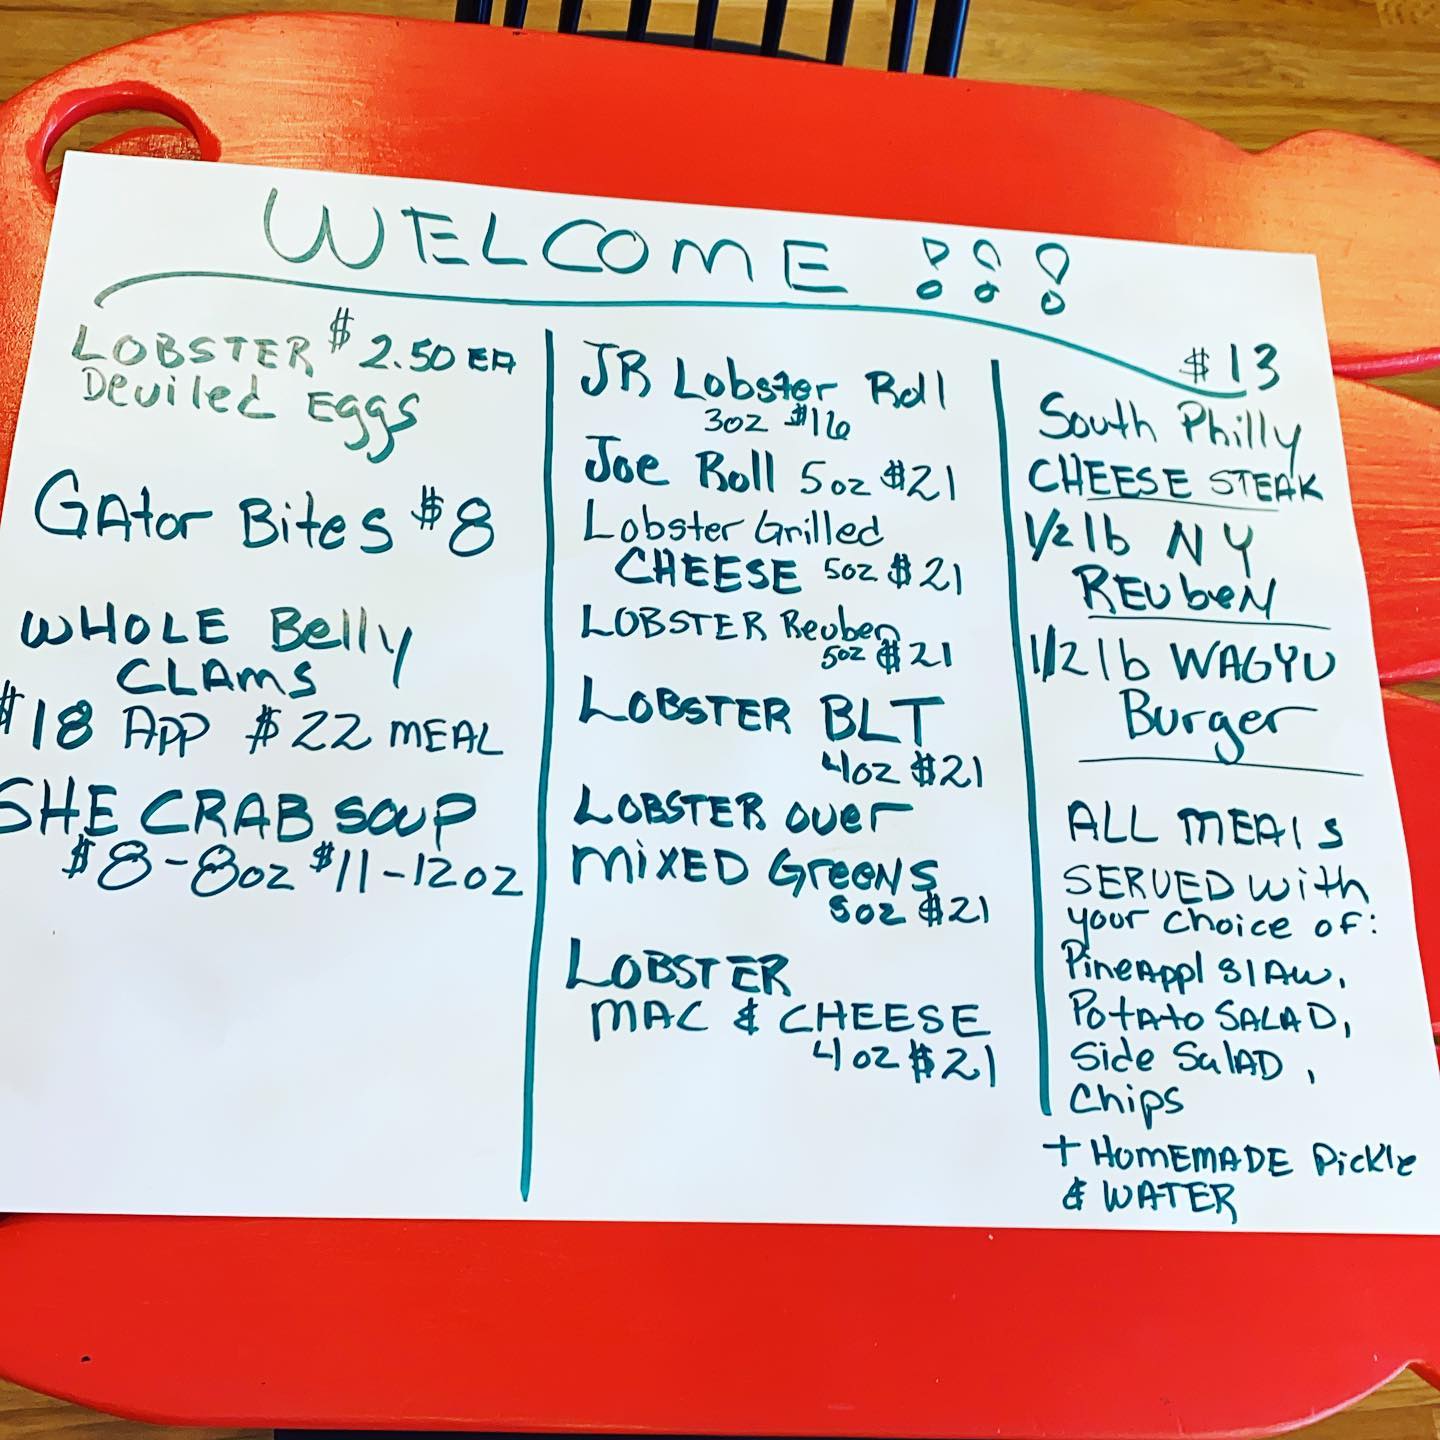 WELCOME !!!
LOBSTER $2.50 EA
Deviled Eggs
GAtor Bites $8
WHOLE Belly
CLAMS
$18 APP $22 MEAL
SHE CRAB SOUP
$8-8oz $11-12oz
JR Lobster Roll
3oz $16
Joe Roll 5oz $21
Lobster Grilled
CHEESE 5oz $21
LOBSTER Reuben
5oz $21
LOBSTER BLT
4oz $21
LOBSTER over
MiXED GreeNS
5oz $21
LOBSTER
MAC & CHEESE
4oz $21
$13
South Philly
CHEESE STEAK
1/2 lb NY
REubeN
1/2 lb WAGYU
Burger
ALL MEAlS
SERVED with
your choice of:
PineAppl SlAw,
PotAto SALAD,
Side SalAD,
Chips
+ HOMEMADE Pickle
& WATER